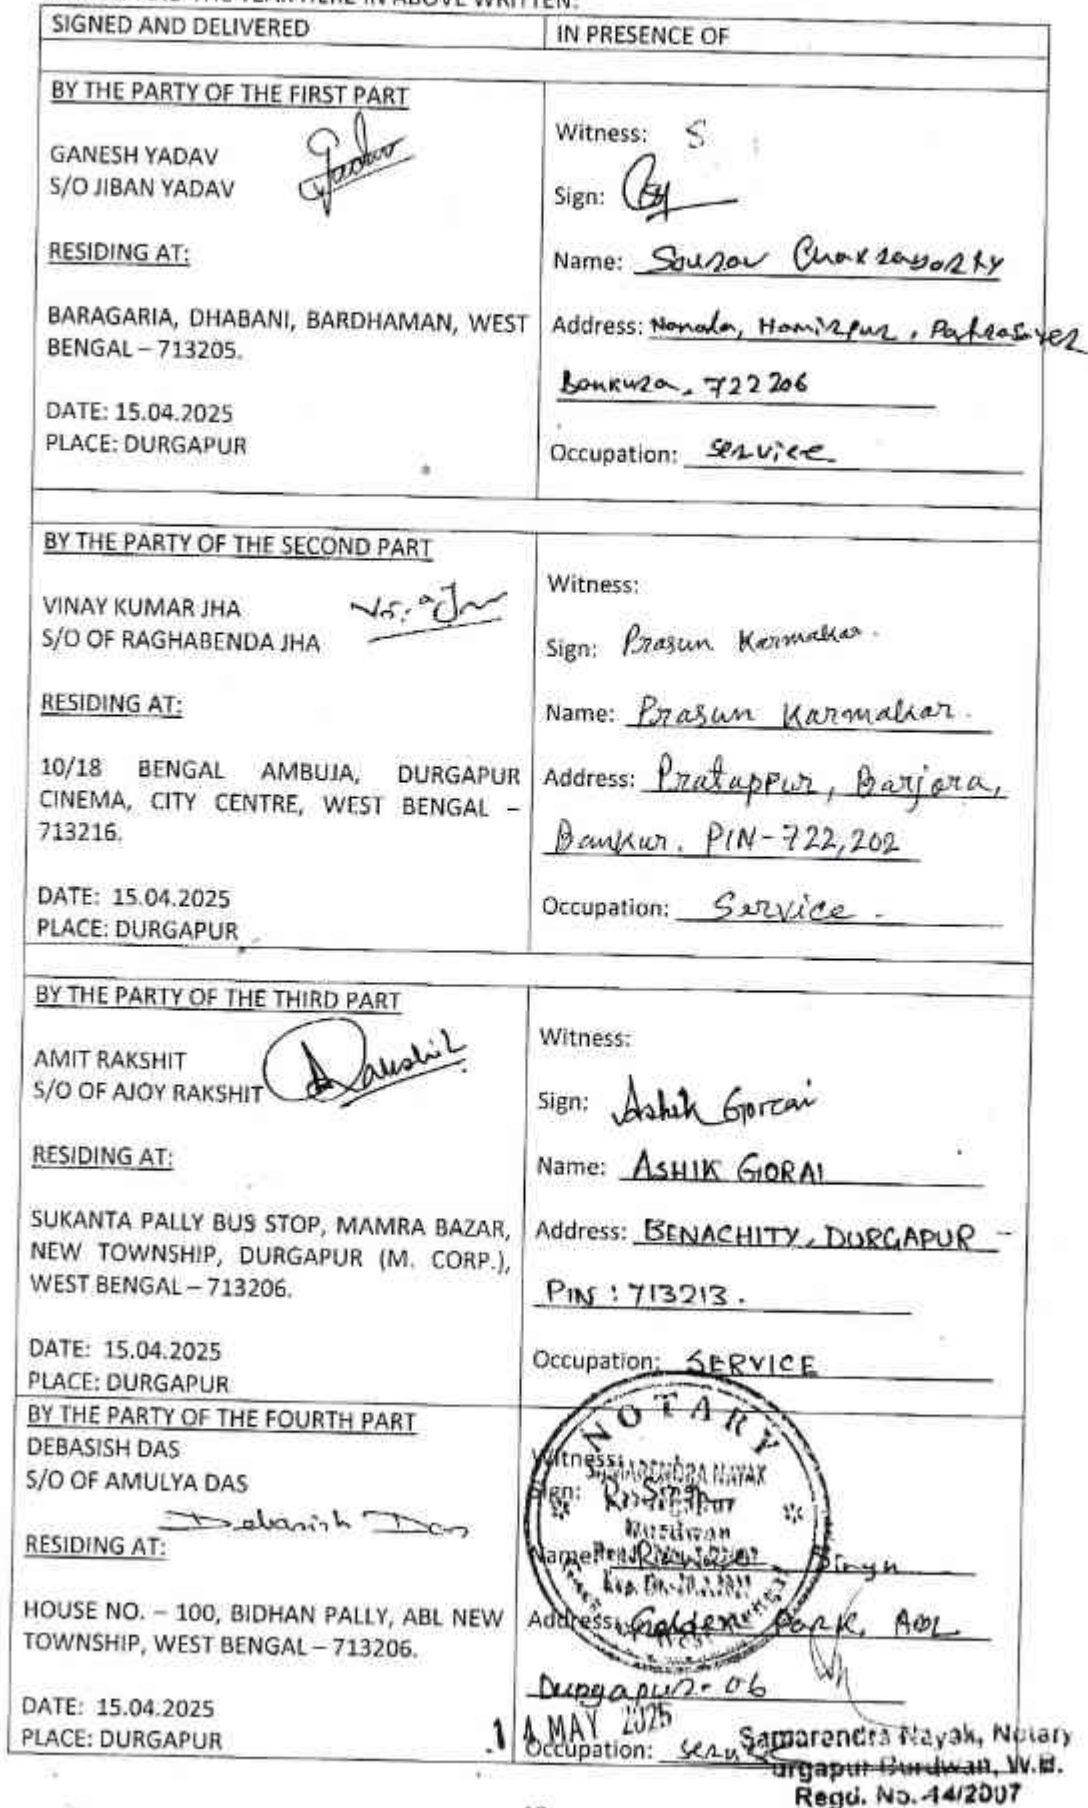 SIGNED AND DELIVERED
IN PRESENCE OF
BY THE PARTY OF THE FIRST PART
GANESH YADAV
S/O JIBAN YADAV
RESIDING AT:
BARAGARIA, DHABANI, BARDHAMAN, WEST
BENGAL – 713205.
DATE: 15.04.2025
PLACE: DURGAPUR
Witness: S
Sign:
Name: Sourav Chakraborty
Address: Hamirpur, Patrasayer
Bankura, 722206
Occupation: service
BY THE PARTY OF THE SECOND PART
VINAY KUMAR JHA
S/O OF RAGHABENDA JHA
RESIDING AT:
10/18 BENGAL AMBUJA, DURGAPUR
CINEMA, CITY CENTRE, WEST BENGAL –
713216.
DATE: 15.04.2025
PLACE: DURGAPUR
Witness:
Sign: Prasun Karmakar.
Name: Prasun Karmakar.
Address: Pratappur, Barjora,
Bankur. PIN-722,202
Occupation: Service.
BY THE PARTY OF THE THIRD PART
AMIT RAKSHIT
S/O OF AJOY RAKSHIT
A Rakshit
RESIDING AT:
SUKANTA PALLY BUS STOP, MAMRA BAZAR,
NEW TOWNSHIP, DURGAPUR (M. CORP.),
WEST BENGAL – 713206.
DATE: 15.04.2025
PLACE: DURGAPUR
Witness:
Sign: Ashik Gorai
Name: ASHIK GORAI
Address: BENACHITY, DURGAPUR –
PIN : 713213.
Occupation: SERVICE
BY THE PARTY OF THE FOURTH PART
DEBASISH DAS
S/O OF AMULYA DAS
Debasish Das
RESIDING AT:
HOUSE NO. – 100, BIDHAN PALLY, ABL NEW
TOWNSHIP, WEST BENGAL – 713206.
DATE: 15.04.2025
PLACE: DURGAPUR
NOTARY
SAMARENDRA NAYAK
Durgapur
Burdwan
Witness:
Sign:
Name: Singh
Address: Golden Park, ABL
Durgapur-06
14 MAY 2025
Occupation: service
Samarendra Nayak, Notary
Durgapur Burdwan, W.B.
Regd. No.-44/2007